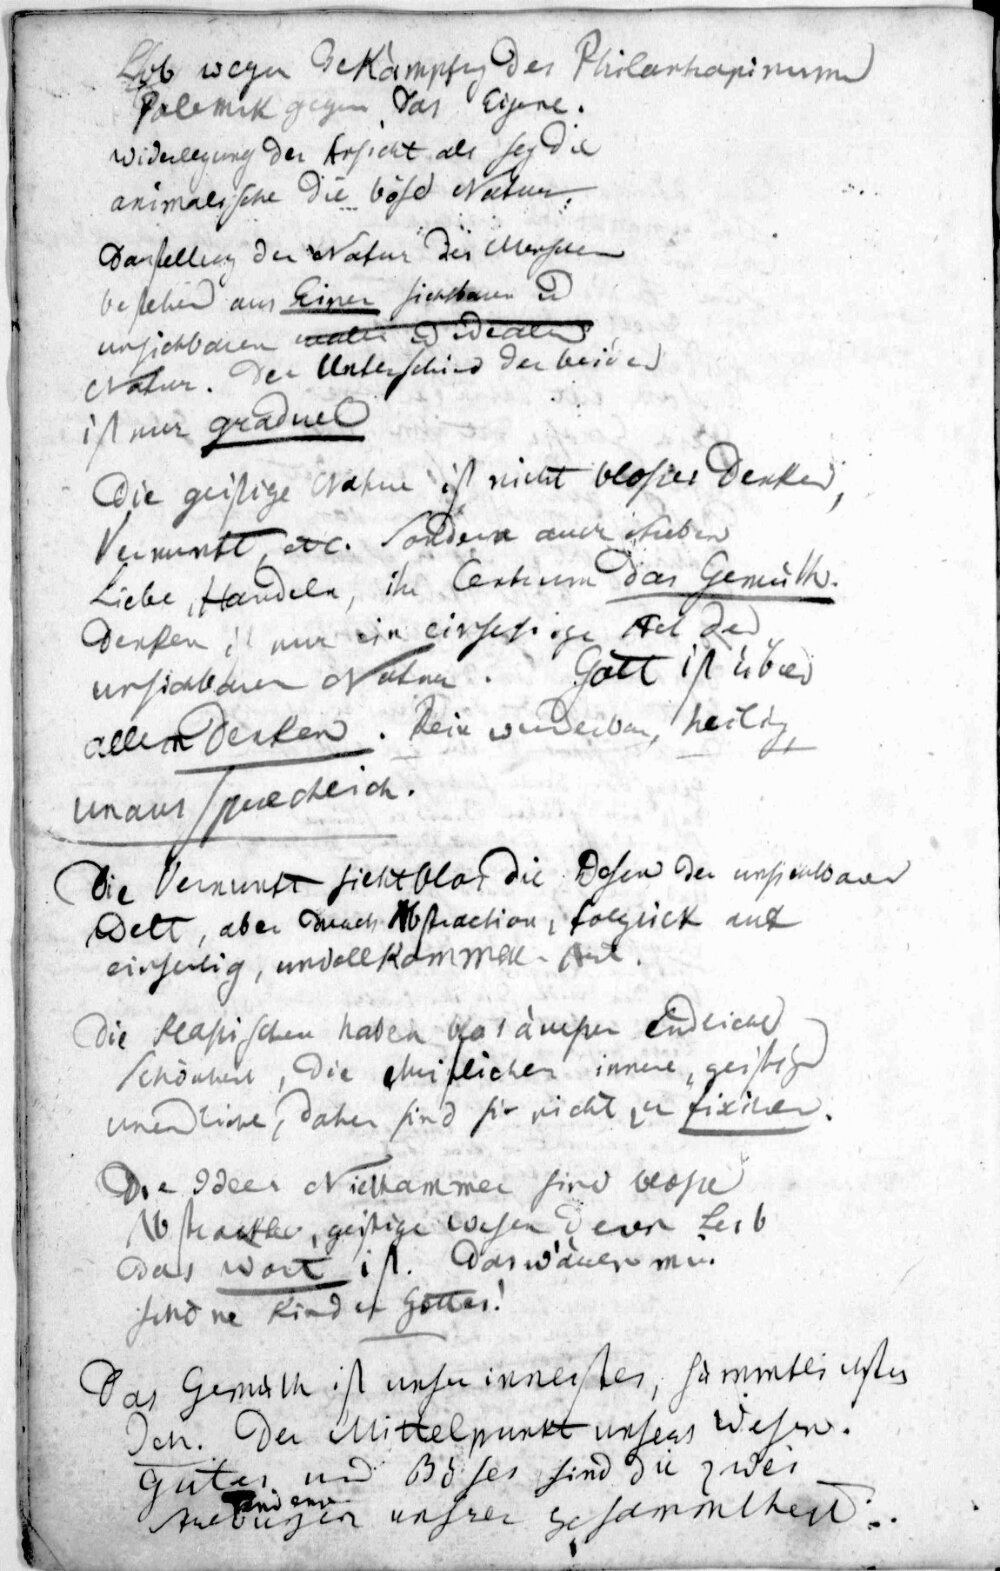 Lob wegen Bekämpfg des Philanthropinismus
Polemik gegen das Eigene.
Widerlegung der Ansicht als sey die
animalische die böse Natur.
Darstellung der Natur des Menschen
bestehend aus Einer sichtbaren u
unsichtbaren realen u idealen
Natur. Der Unterschied der beiden
ist nur graduel
Die geistige Natur ist nicht bloses Denken,
Vernunft, etc. sondern auch
Liebe, Handeln, ihr Centrum das Gemüth.
Denken ist nur ein einseitige Act der
unsichtbaren Natur. Gott ist über
allem Denken. Rein wunderbar, heilig,
unaussprechlich.
Die Vernunft sieht blos die Wesen der unsichtbaren
Welt, aber durch Abstraction, folglich auf
einseitig, unvollkommene Art.
Die klassischen haben blos äusere Endliche
Schönheit, die christlichen innere, geistige
unendliche, daher sind sie nicht zu fixiren.
Die Ideen Niethammer sind blose
Abstrackte, geistige Wesen deren Leib
das Wort ist. Das wären mir
schöne Kinder Gottes!
Das Gemüth ist unser innerstes, sämmtlichstes
Ich. Der Mittelpunkt unsers Wesen.
Gutes und Böses sind die zwei
unsrer Gesammtheit.